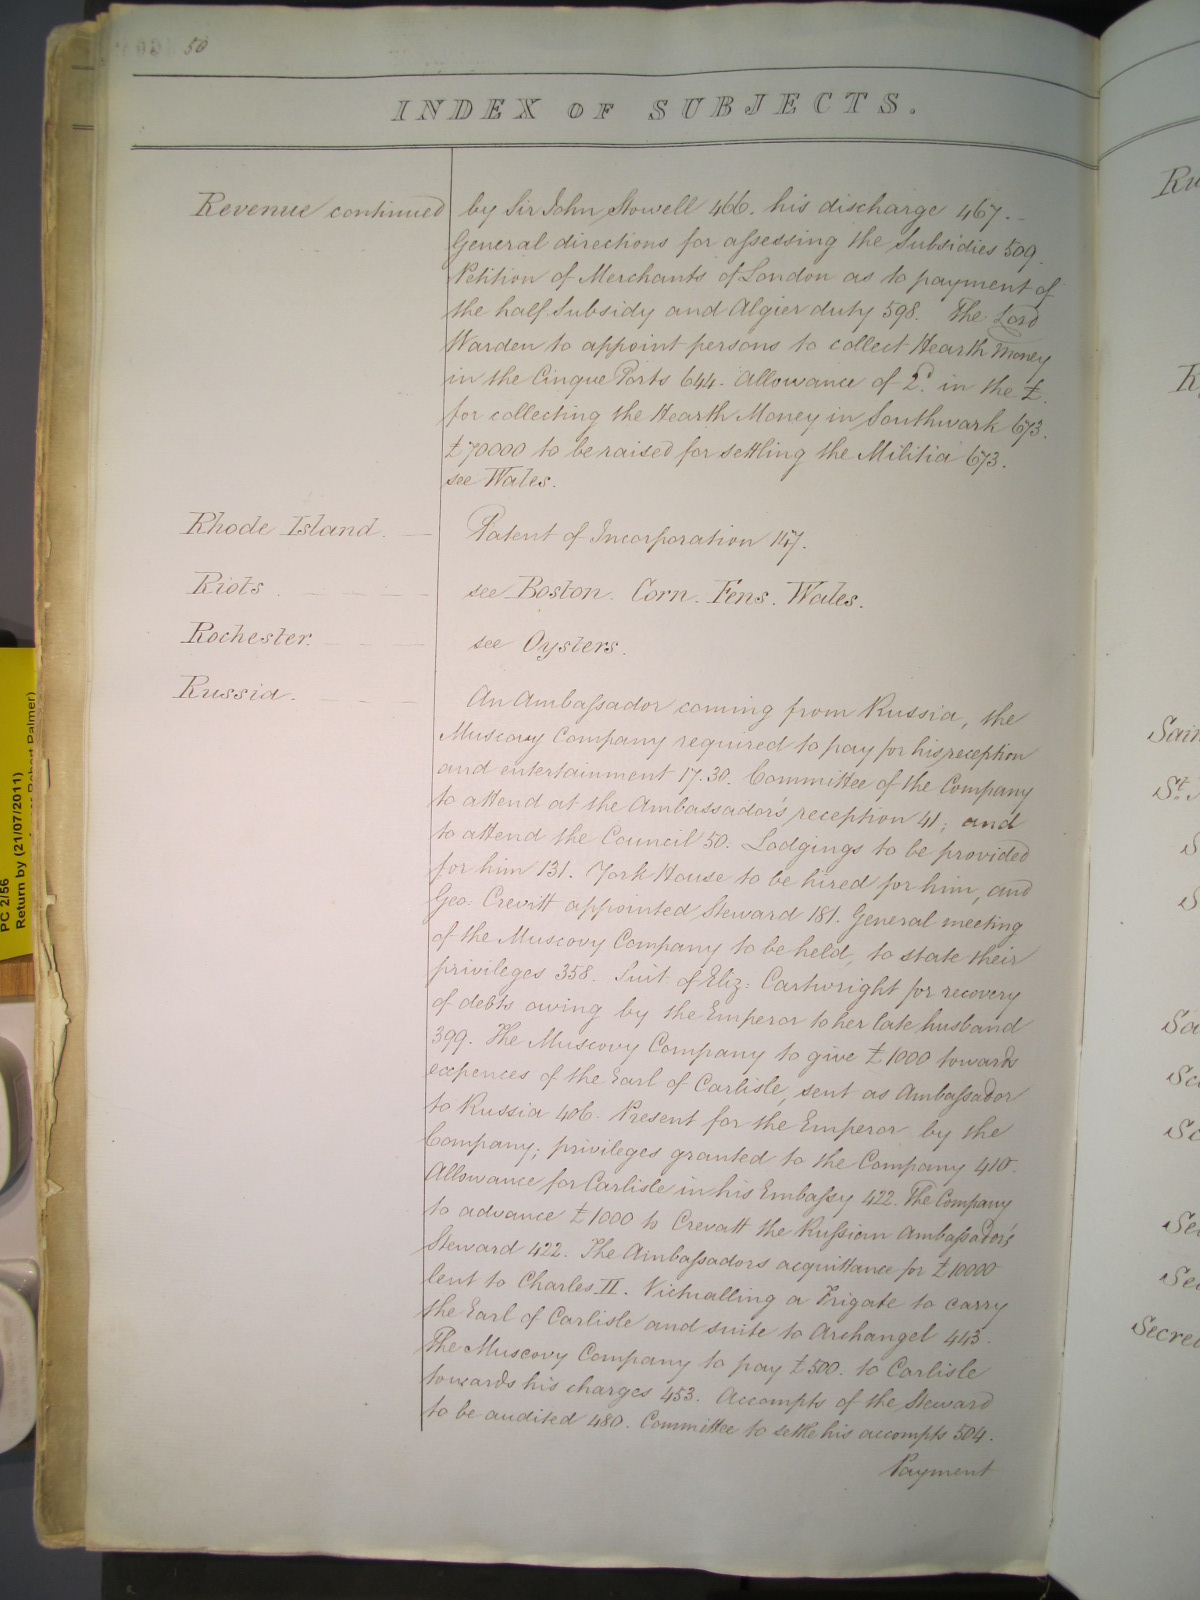 50
INDEX OF SUBJECTS.
Revenue continued by Sir John Stowell 466. his discharge 467. –
General directions for assessing the Subsidies 509.
Petition of Merchants of London as to payment of
the half Subsidy and Algier duty 598. The Lord
Warden to appoint persons to collect Hearth Money
in the Cinque Ports 644. Allowance of 2d. in the £.
for collecting the Hearth Money in Southwark 673.
£70000 to be raised for settling the Militia 673.
see Wales.
Rhode Island. — Patent of Incorporation 147.
Riots. — — — — see Boston. Corn. Fens. Wales.
Rochester. — — — see Oysters.
Russia. — — — An Ambassador coming from Russia, the
Muscovy Company required to pay for his reception
and entertainment 17. 30. Committee of the Company
to attend at the Ambassador's reception 41; and
to attend the Council 50. Lodgings to be provided
for him 131. York House to be hired for him, and
Geo: Crevitt appointed Steward 181. General meeting
of the Muscovy Company to be held, to state their
privileges 358. Suit of Eliz: Cartwright for recovery
of debts owing by the Emperor to her late husband
399. The Muscovy Company to give £1000 towards
expences of the Earl of Carlisle, sent as Ambassador
to Russia 406. Present for the Emperor by the
Company; privileges granted to the Company 410.
Allowance for Carlisle in his Embassy 422. The Company
to advance £1000 to Crevatt the Russian Ambassador's
Steward 422. The Ambassadors acquittance for £10000
lent to Charles II. Victualling a Frigate to carry
the Earl of Carlisle and suite to Archangel 443.
The Muscovy Company to pay £500. to Carlisle
towards his charges 453. Accompts of the Steward
to be audited 480. Committee to settle his accompts 504.
Payment
PC 2/56
Return by (21/07/2011)
Robert Palmer)
Sain
Secre